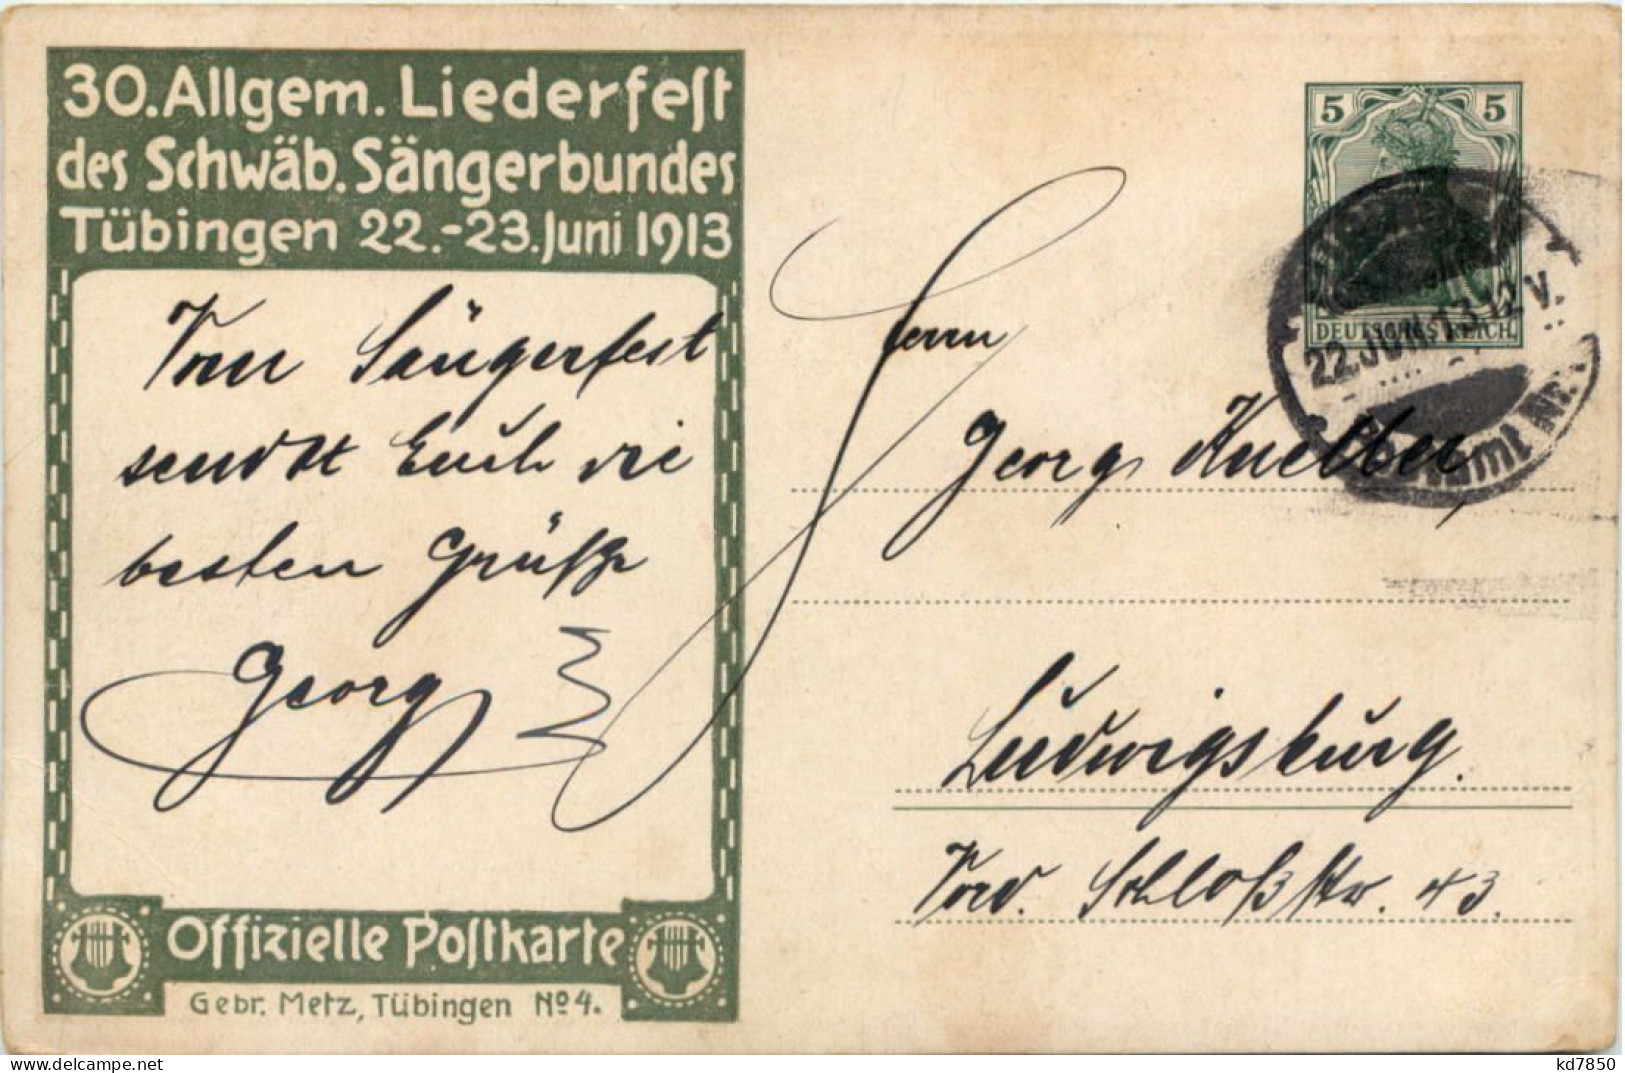 30. Allgem. Liederfeſt
des Schwäb. Sängerbundes
Tübingen 22.-23. Juni 1913
Vom Sängerfest
sendet Euch die
besten Grüße
Georg
Offizielle Poſtkarte
Gebr. Metz, Tübingen No 4.
5 5
DEUTSCHES REICH
22.JUN.13.12 V.
Postamt Nr. 1
Herrn
Georg
Ludwigsburg.
Vord. Schloßstr. 43.
http://www.ansichtskarten-center.de/
kd7850